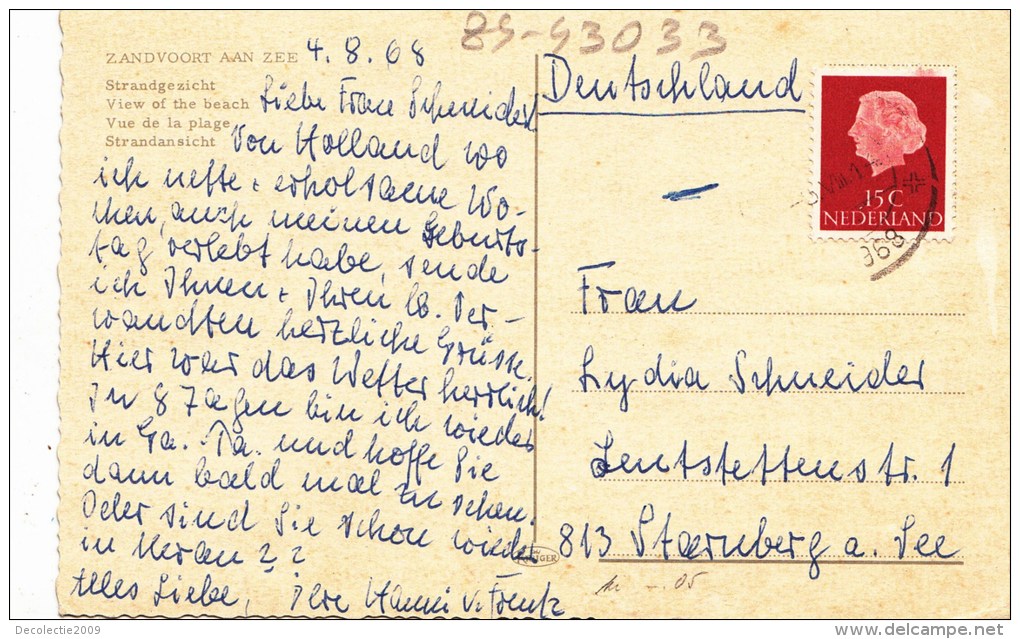 89-93033
ZANDVOORT AAN ZEE 4.8.68
Strandgezicht
View of the beach
Vue de la plage
Strandansicht
Liebe Frau Schneider!
Von Holland wo
ich nette + erholsame Wo-
chen, auch meinen Geburts-
tag, verlebt habe, sende
ich Ihnen + Ihren lb. Ver-
wandten herzliche Grüsse.
Hier war das Wetter herrlich!
In 8 Tagen bin ich wieder
in Ga. Pa. und hoffe Sie
dann bald mal zu sehen.
Oder sind Sie schon wieder
in Meran??
Alles Liebe, Ihre Hanni v.
Deutschland
15C
NEDERLAND
968
Frau
Lydia Schneider
Leutstettenstr. 1
813 Starnberg a. See
Decolectie2009
delcampe.net